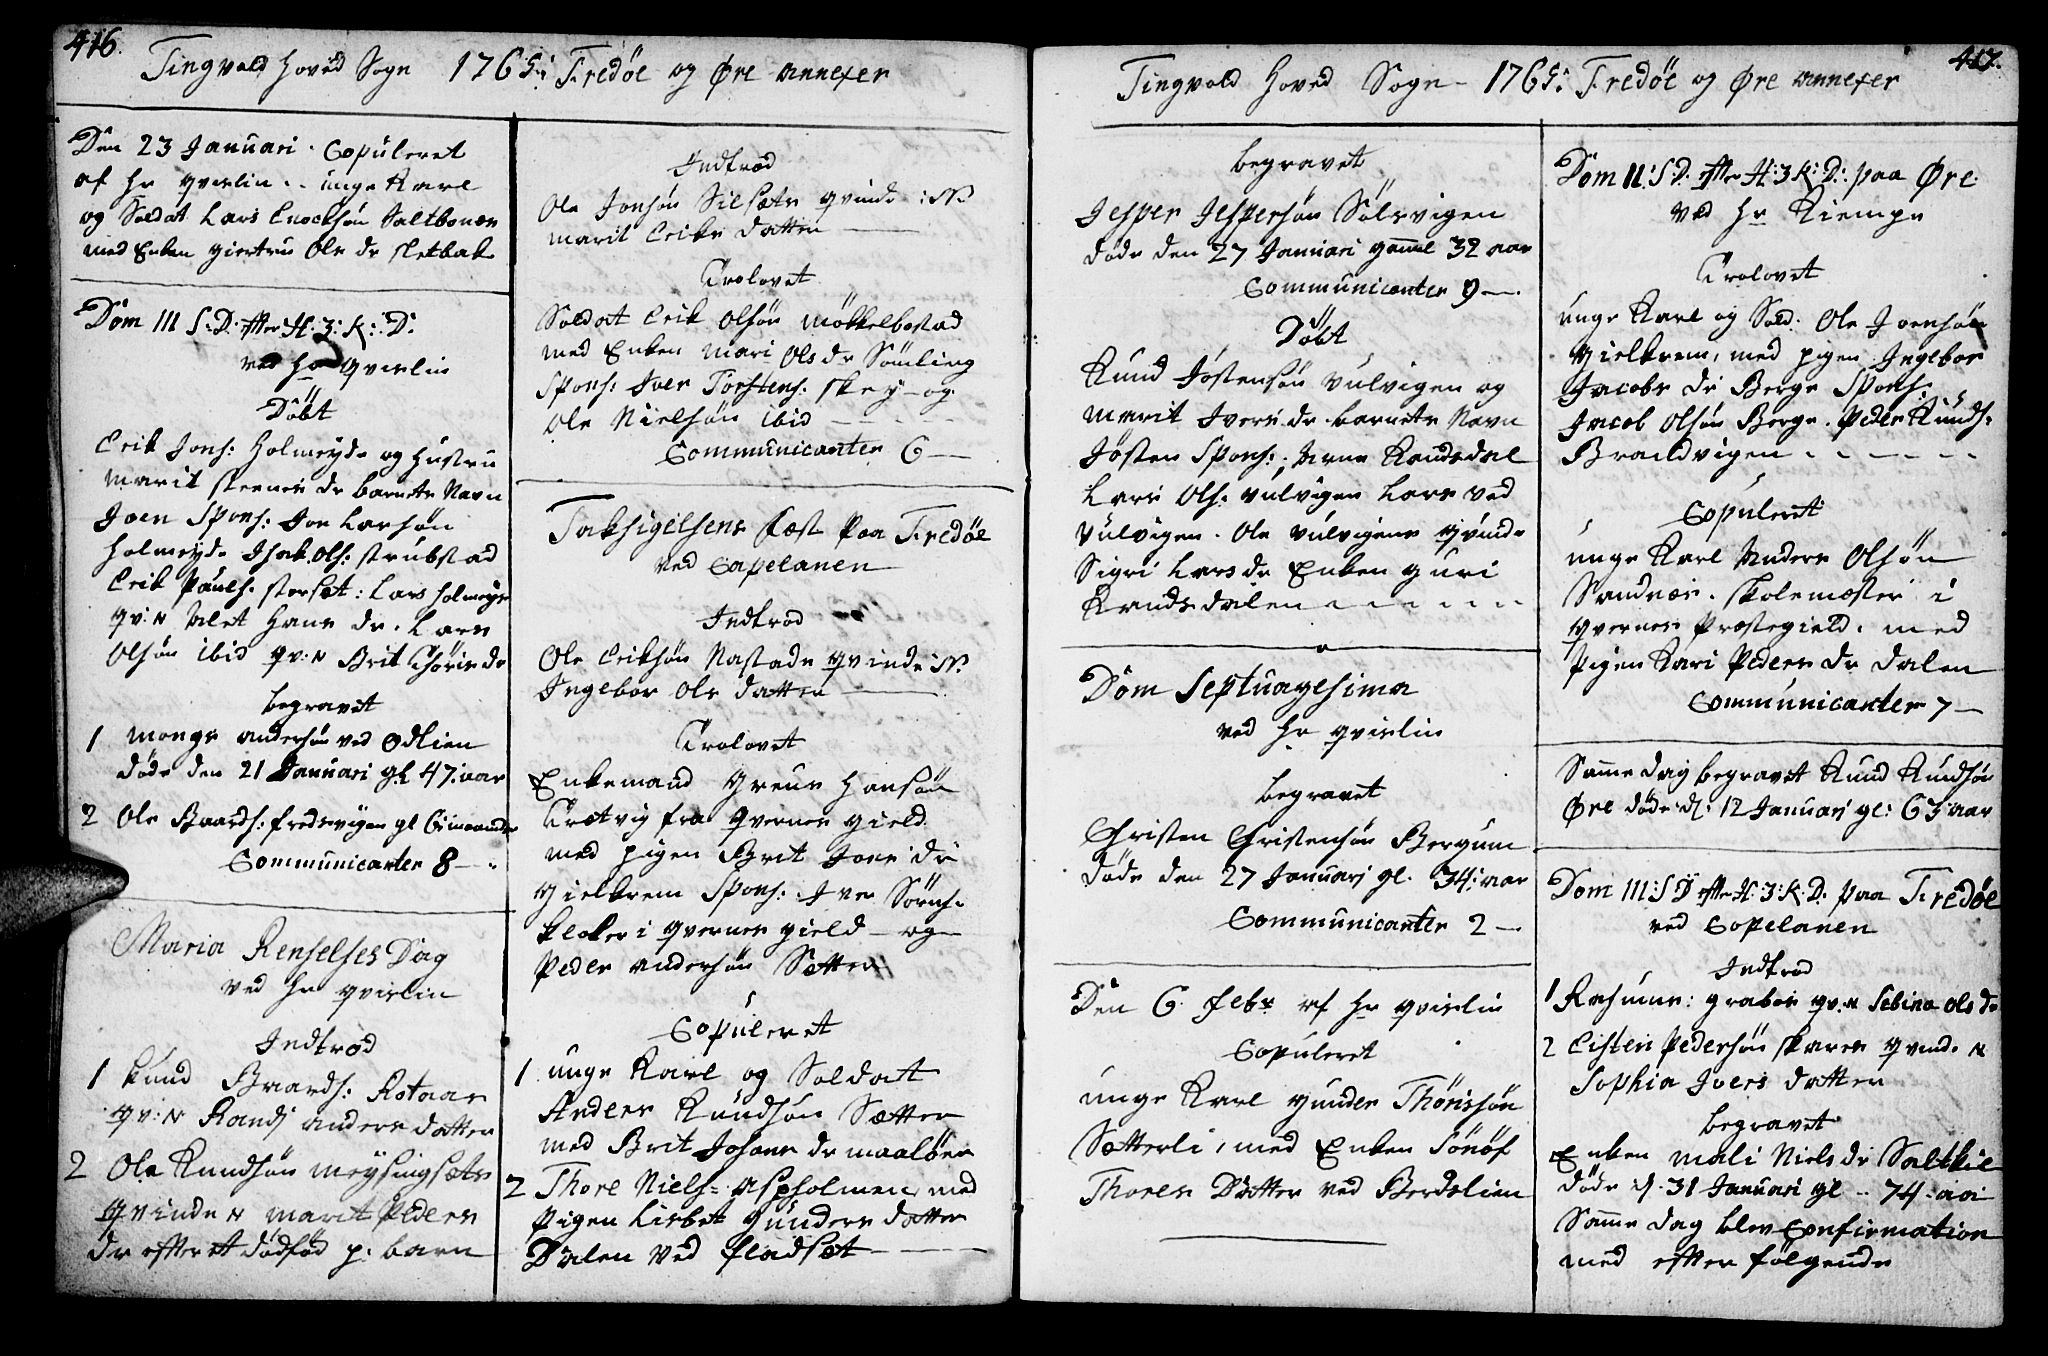 416.
Tingvold Hoved Sogn 1765: Fredøe og Øre Annexer
Den 23 Januari. Copuleret
af Hr Qvislin .. unge Karl
og Soldat Lars Enochsøn Saltbones
med Enken giertru Ols dr sletbak
Dom III S: D: effter H: 3: K: D:
ved Hr Qvislin
Döbt
Erik Jons: Holmeyde og Hustru
marit steener dr barnets Navn
Joen Spons: Jon Larsøn
Holmeyde Isak Ols: strubstad
Erik Pauls. storsæt: Lars Holmeyde
qv: N Alet Hans dr. Lars
Olsøn ibid qv: N Brit Thoris dr
begravet
1 mongs andersøn ved Odlien
döde den 21 Januari gl 47. aar
2 Ole Baards: fredsvigen gl
Communicanter 8 —
Maria Renselses Dag
ved Hr qvislin
Indtrod
1 Knud Baards: Rotaas
qv: N Randj anders datter
2 Ole Knudsøn meysingsæts
qvinde N marit Peders
dr effter et dödföd p: barn
Indtrod
Ole Jonsøn Silsæts qvinde : N:
marit Eriks datter
Trolovet
Soldat Erik Olsøn möckelbostad
med Enken mari Ols dr Sömling
Spons: Iver Torstens: skey — og
Ole Nielsøn ibid
Communicanter 6 —
Taksigelsens fæst paa Fredöe
ved Capelanen
Indtrod
Ole Eriksøn Nastads qvinde N:
Ingebor Ols datter
Trolovet
Enkemand greus Hansøn
Trætvig fra qvernes gield
med pigen Brit Joens dr
gielkrem Spons: Iver Sörens.
klokker i qvernes gield — og
Peder andersøn Sætter
Copuleret
1 unge Karl og Soldat
Anders Knudsøn Sætter
med Brit Johans dr maalöen
2 Thore Niels: Aspholmen med
Pigen Lisbet gunders datter
Dalen ved fladsæt
417.
Tingvold Hoved Sogn — 1765: Fredöe og Øre Annexer
begravet
Jesper Jespersøn Sölsvigen
döde den 27 Januari gammel 32 aar
Communicanter 9 —
Döbt
Knud Jöstensøn Vulvigen og
marit Ivers dr barnets Navn
Jösten Spons: Arne Kandsdal
Lars Ols: Vulvigen Lars ved
Vulvigen. Ole Vulvigens qvinde
Sigri Lars dr Enken guri
Kandsdalen
Dom Septuagesima
ved Hr qvislin
begravet
Christen Christensøn Bergum
döde den 27 Januarj gl. 34: aar
Communicanter 2 —
Den 6. febr af Hr qvislin
Copuleret
unge Karl gunder Thörissøn
Sætterli, med Enken Sönöf
Thores Datter ved Bordalien
Dom II: S D. effter H: 3 K: D: paa Øre
ved Hr Kiempe
Trolovet
unge Karl og Sold. Ole Joensøn
gielkrem, med pigen Ingebor
Jacobs dr Berge Spons:
Jacob Olsøn Berge. Peder Knuds:
Brandvigen
Copuleret
unge Karl Anders Olsøn
Sandnes. skolemester i
qvernes Præstegield. med
Pigen Kari Peders dr Dalen
Communicanter 7 —
Samme dag begravet Knud Knudsøn
Øre döde d: 12 Januarj gl: 63 aar
Dom III: S D effter H: 3: K: D. paa Fredöe
ved Copelanen
Indtrod
1 Rasmus: grabos qv: N Sebina Ols dr
2 Eisten Pedersøn skares qvinde N
Sophia Ivers datter
begravet
Enken mali Niels dr Saltkiel
döde d. 31 Januari gl .. 74. aar
Samme dag blev Confirmation
med efter fölgende